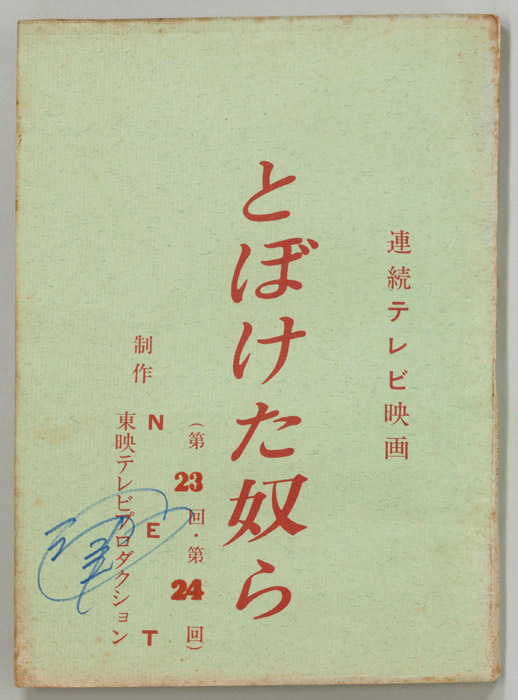 連続テレビ映画
とぼけた奴ら
(第23回・第24回)
制作
NET
東映テレビプロダクション